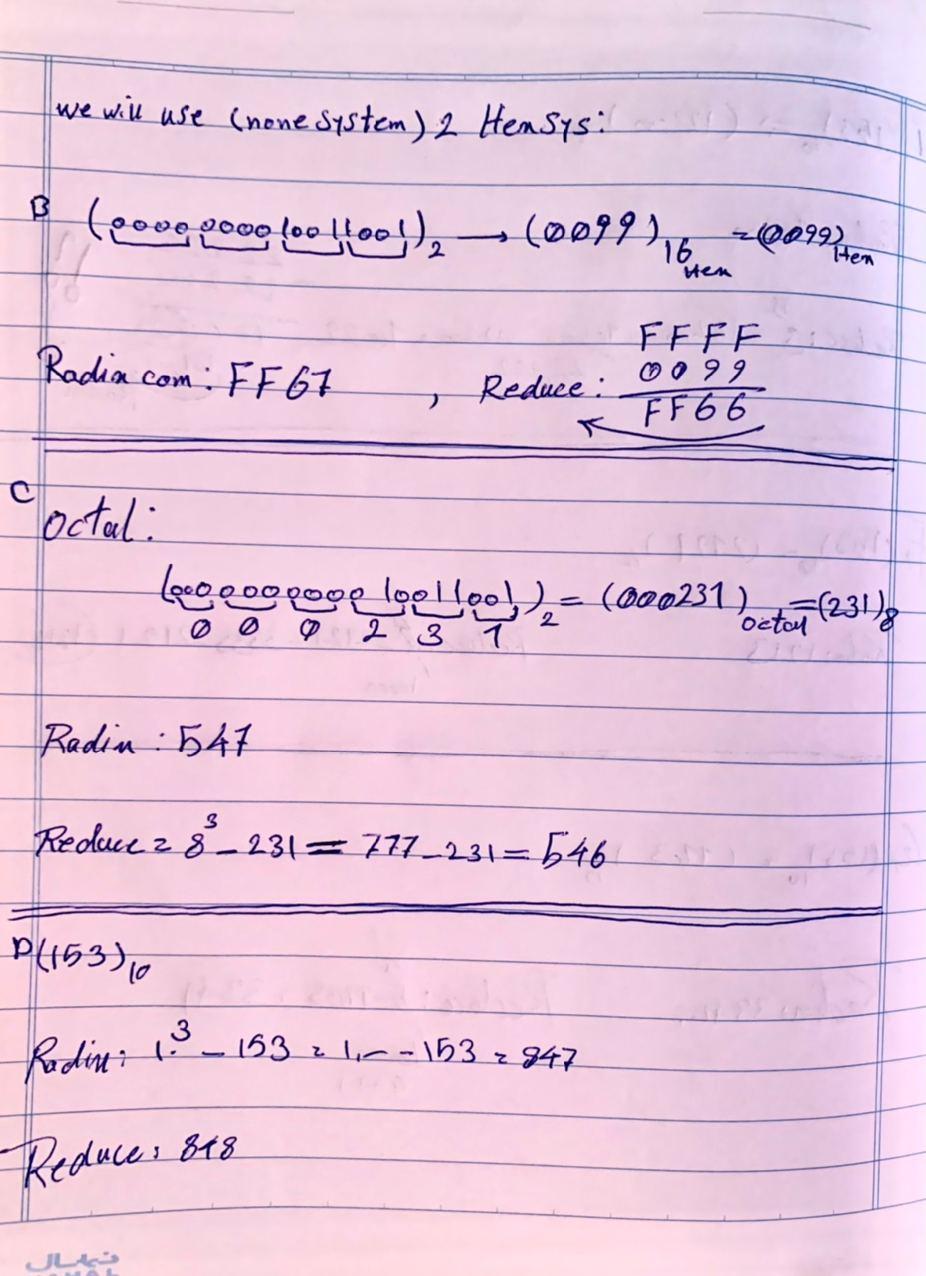 we will use (none system) 2 Hex sys:
B (0000 0000 1001 1001)2 → (0099)16 Hex = (0099)Hex
FFFF
0099
Radix com: FF67 , Reduce: FF66
C
octal:
(000 000 000 0 10 011 001)2 = (000231)octal = (231)8
0 0 0 2 3 1
Radix : 547
Reduce = 8³ - 231 = 777 - 231 = 546
D (153)10
Radix: 1.³ - 153 = 1,-- - 153 = 847
Reduce: 848
نهال